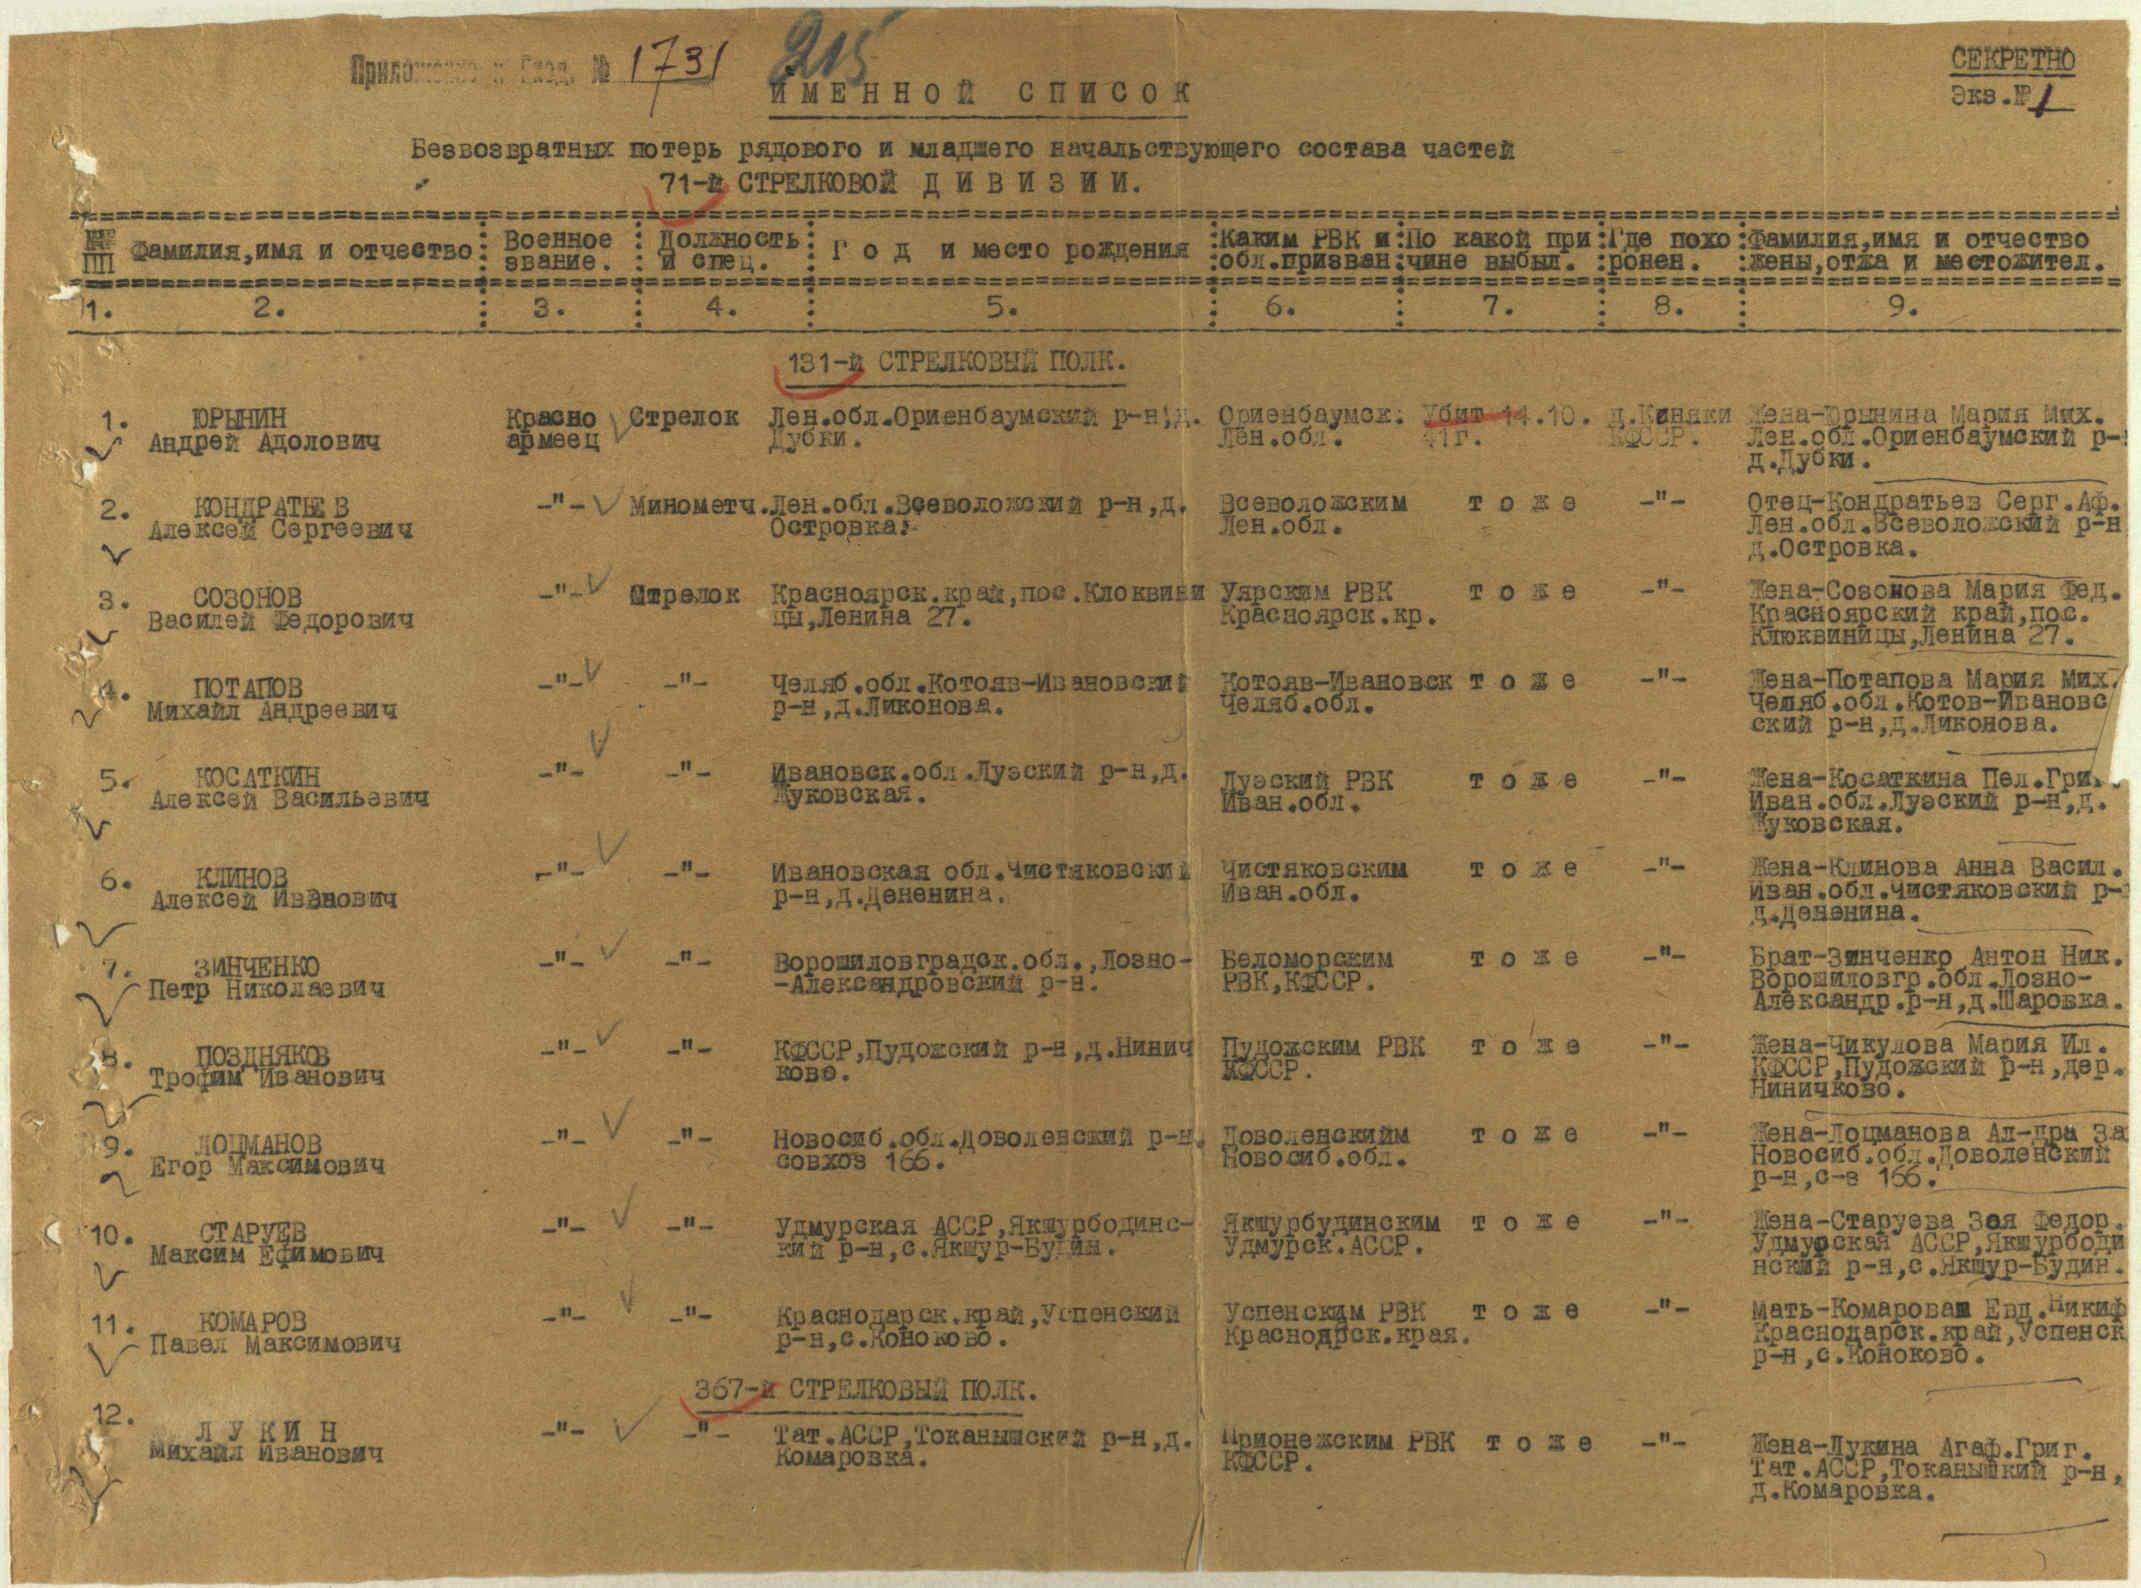 Приложение к вход. № 1731
215
СЕКРЕТНО
Экз.№ 1
ИМЕННОЙ СПИСОК
Безвозвратных потерь рядового и младшего начальствующего состава частей
71-й СТРЕЛКОВОЙ ДИВИЗИИ.
№№ ПП : Фамилия,имя и отчество : Военное звание. : Должность и спец. : Год и место рождения : Каким РВК и обл.призван : По какой при чине выбыл. : Где похо ронен. : Фамилия,имя и отчество жены,отжа и местожител.
1. 2. 3. 4. 5. 6. 7. 8. 9.
131-й СТРЕЛКОВЫЙ ПОЛК.
1. ЮРЫНИН Красно Стрелок Лен.обл.Ориенбаумский р-н,д. Ориенбаумск. Убит 14.10. д.Киняки Жена-Юрынина Мария Мих.
Андрей Адолович армеец Дубки. Лен.обл. 41г. КФССР. Лен.обл.Ориенбаумский р-
д.Дубки.
2. КОНДРАТЬЕВ -"- Минометч. Лен.обл.Всеволожский р-н,д. Всеволожским тоже -"- Отец-Кондратьев Серг.Аф.
Алексей Сергеевич Островка. Лен.обл. Лен.обл.Всеволожский р-н
д.Островка.
3. СОЗОНОВ -"- Стрелок Красноярск.край,пос.Клоквини Уярским РВК тоже -"- Жена-Созонова Мария Фед.
Василей Федорович цы,Ленина 27. Красноярск.кр. Красноярский край,пос.
Клюквиницы,Ленина 27.
4. ПОТАПОВ -"- -"- Челяб.обл.Котояв-Ивановский Котояв-Ивановск тоже -"- Жена-Потапова Мария Мих.
Михайл Андреевич р-н,д.Ликонова. Челяб.обл. Челяб.обл.Котов-Ивановс
ский р-н,д.Ликонова.
5. КОСАТКИН -"- -"- Ивановск.обл.Луэский р-н,д. Луэский РВК тоже -"- Жена-Косаткина Пел.Гри
Алексей Васильевич Жуковская. Иван.обл. Иван.обл.Луэский р-н,д.
Жуковская.
6. КЛИНОВ -"- -"- Ивановская обл.Чистяковский Чистяковским тоже -"- Жена-Клинова Анна Васил.
Алексей Иванович р-н,д.Дененина. Иван.обл. Иван.обл.Чистяковский р-
д.Дененина.
7. ЗИНЧЕНКО -"- -"- Ворошиловградск.обл.,Лозно- Беломорским тоже -"- Брат-Зинченко Антон Ник.
Петр Николаевич -Александровский р-н. РВК,КФССР. Ворошиловгр.обл.Лозно-
Александр.р-н,д.Шаровка.
8. ПОЗДНЯКОВ -"- -"- КФССР,Пудожский р-н,д.Нинич Пудожским РВК тоже -"- Жена-Чикулова Мария Ил.
Трофим Иванович ково. КФССР. КФССР,Пудожский р-н,дер.
Ниничково.
9. ЛОЦМАНОВ -"- -"- Новосиб.обл.Доволенский р-н. Доволенскийм тоже -"- Жена-Лоцманова Ал-дра За
Егор Максимович совхоз 166. Новосиб.обл. Новосиб.обл.Доволенский
р-н,с-з 166.
10. СТАРУЕВ -"- -"- Удмурская АССР,Якшурбодинс- Якшурбудинским тоже -"- Жена-Старуева Зоя Федор.
Максим Ефимович кий р-н,с.Якшур-Будин. Удмурск.АССР. Удмурская АССР,Якшурбоди
нский р-н,с.Якшур-Будин.
11. КОМАРОВ -"- -"- Краснодарск.край,Успенский Успенским РВК тоже -"- Мать-Комарова Евд.Никиф
Павел Максимович р-н,с.Коноково. Краснодрск.края. Краснодарск.край,Успенск
р-н,с.Коноково.
367-й СТРЕЛКОВЫЙ ПОЛК.
12. ЛУКИН -"- -"- Тат.АССР,Токанышский р-н,д. Прионежским РВК тоже -"- Жена-Лукина Агаф.Григ.
Михайл Иванович Комаровка. КФССР. Тат.АССР,Токанышкий р-н,
д.Комаровка.